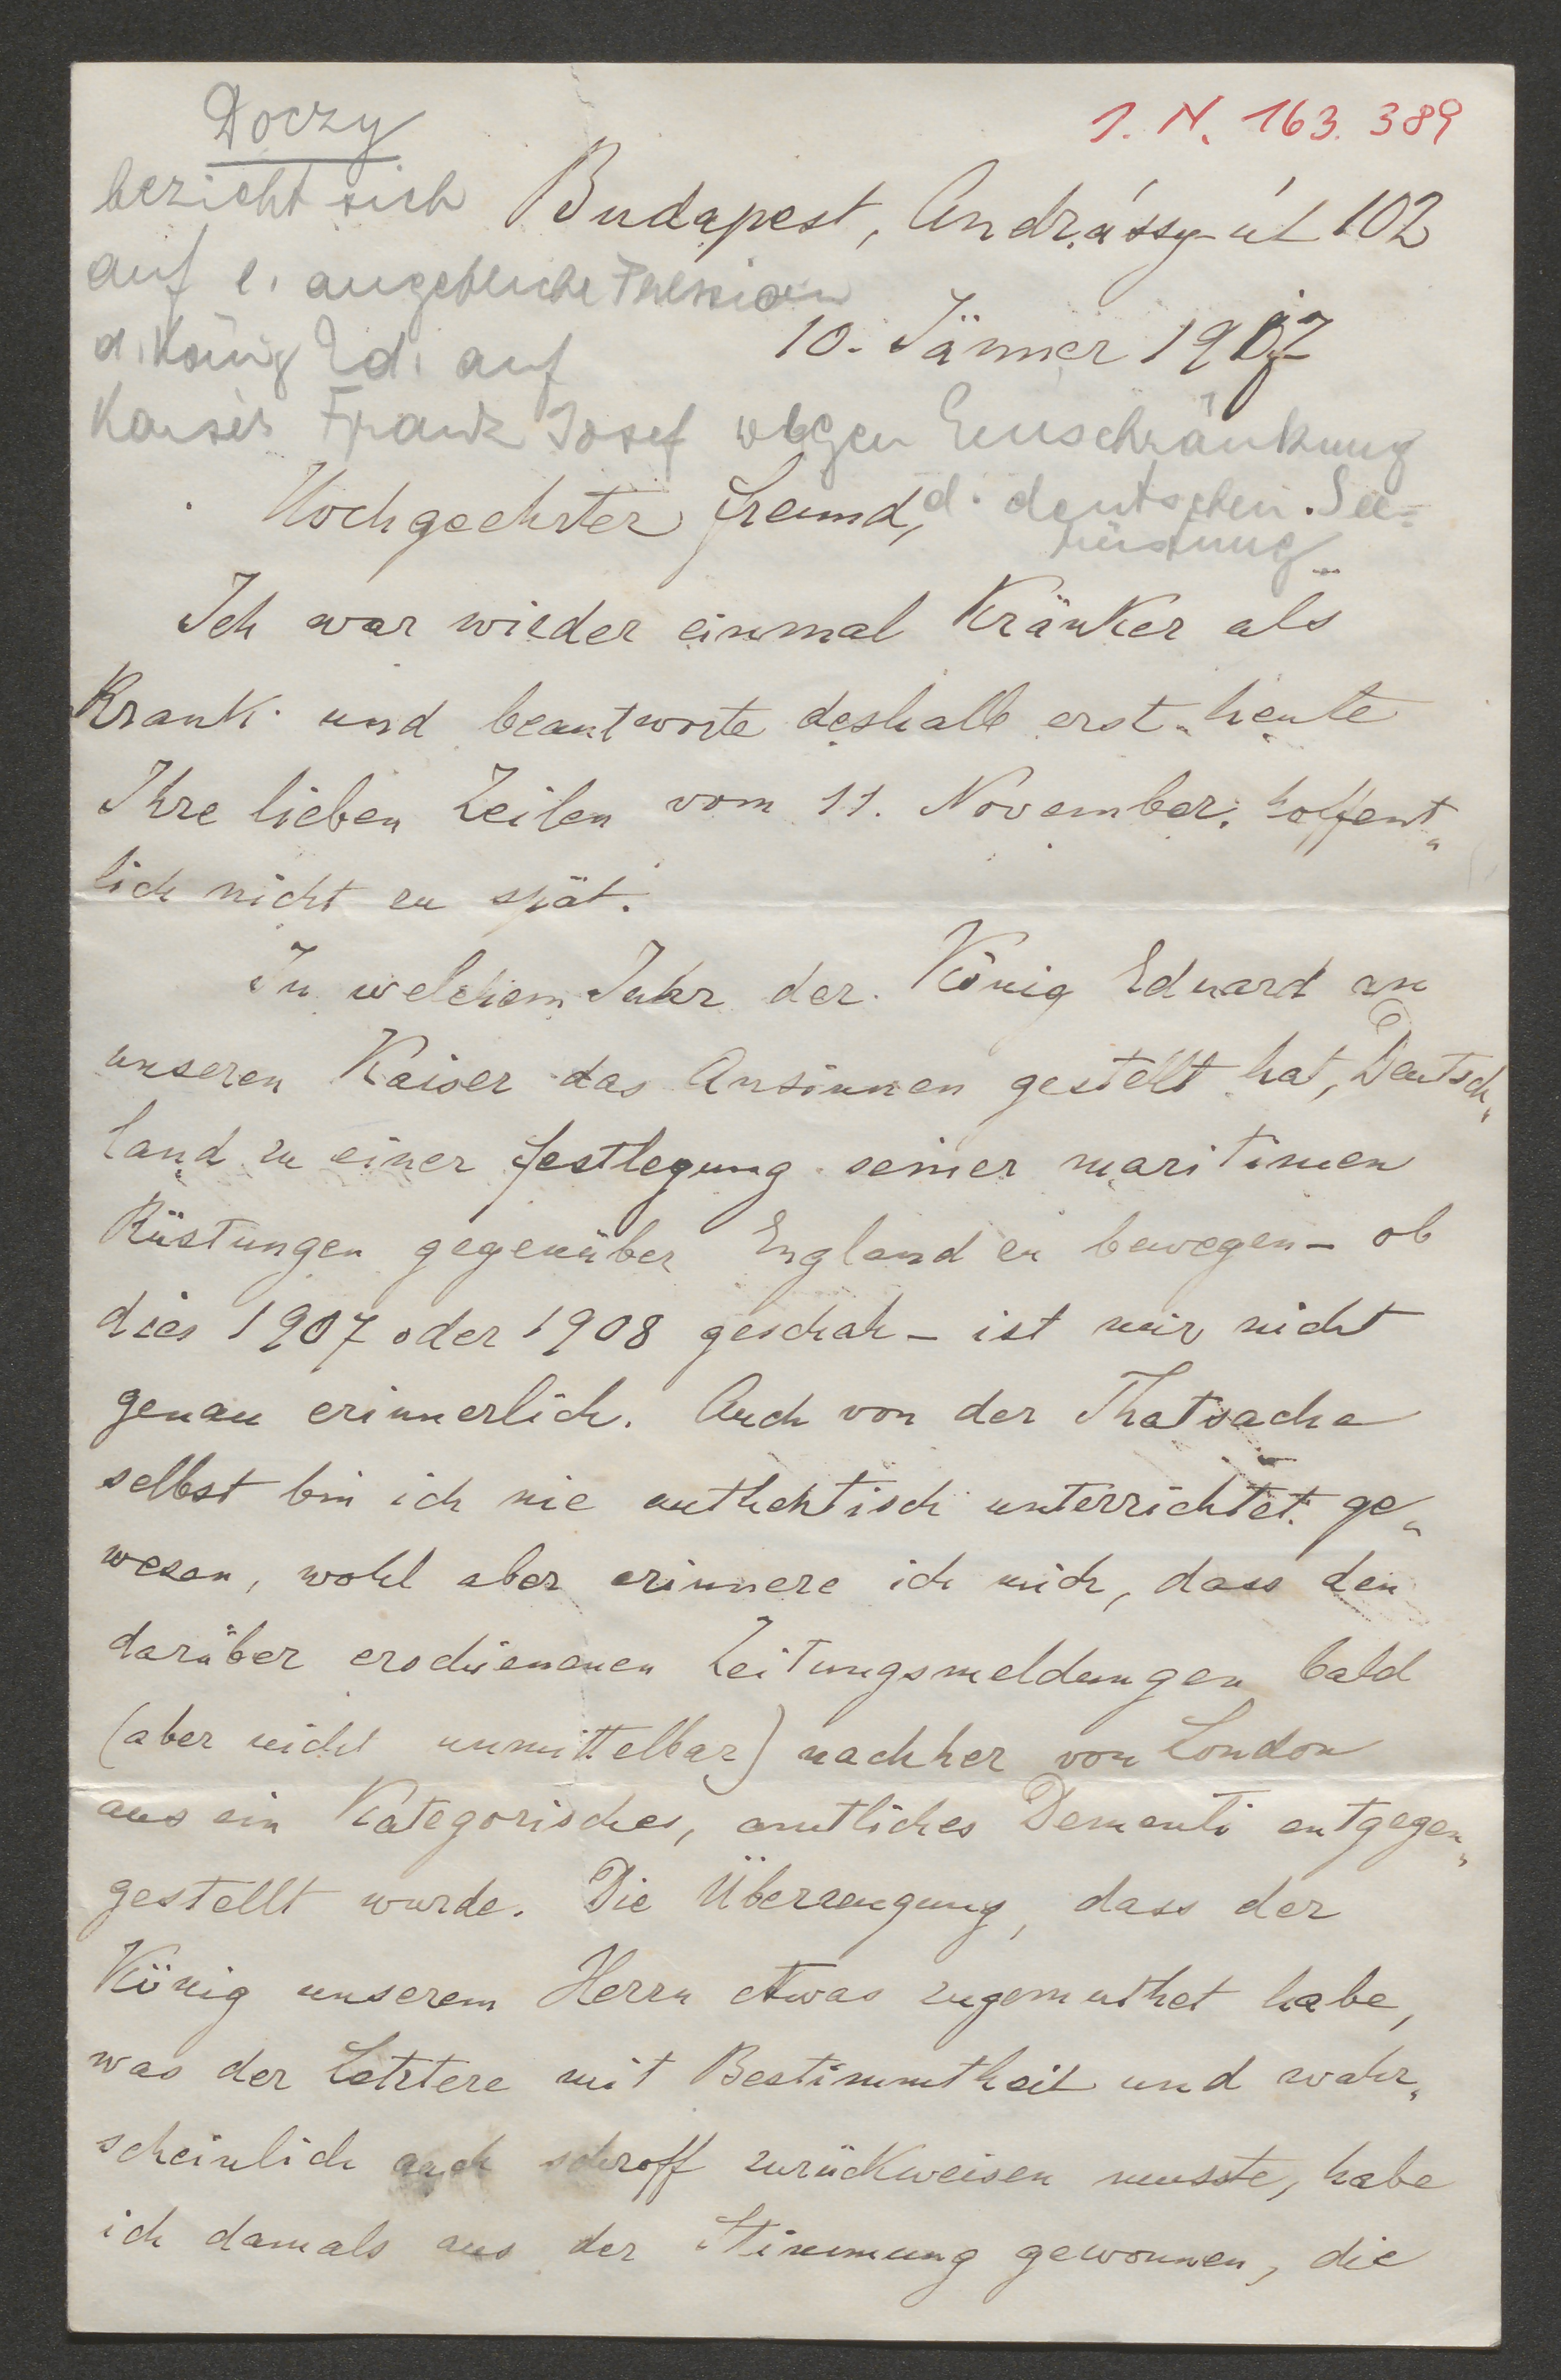 Doczy
I. N. 163.389
bezieht sich
Budapest, Andrássy-út 102
auf e. angebliche Pression
d. König Ed. auf
10. Jänner 1917
Kaiser Franz Josef wegen Einschränkung
d. deutschen See=
rüstung
Hochgeehrter Freund,
Ich war wieder einmal Kränker als
Krank und beantworte deshalb erst heute
Ihre lieben Zeilen vom 11. November. hoffent„
lich nicht zu spät.
In welchem Jahr der König Eduard an
unseren Kaiser das Ansinnen gestellt hat, Deutsch„
land zu einer Festlegung seiner maritimen
Rüstungen gegenüber England zu bewegen – ob
dies 1907 oder 1908 geschah – ist mir nicht
genau erinnerlich. Auch von der Thatsache
selbst bin ich nie authehtisch unterrichtet ge„
wesen, wohl aber erinnere ich mich, dass den
darüber erschienenen Zeitungsmeldungen bald
(aber nicht unmittelbar) nachher von London
aus ein Kategorisches, amtliches Dementi entgegen„
gestellt wurde. Die Überzeugung, dass der
König unserem Herrn etwas zugemuthet habe,
was der Letztere mit Bestimmtheit und wahr„
scheinlich auch schroff zurückweisen musste, habe
ich damals aus der Stimmung gewonnen, die